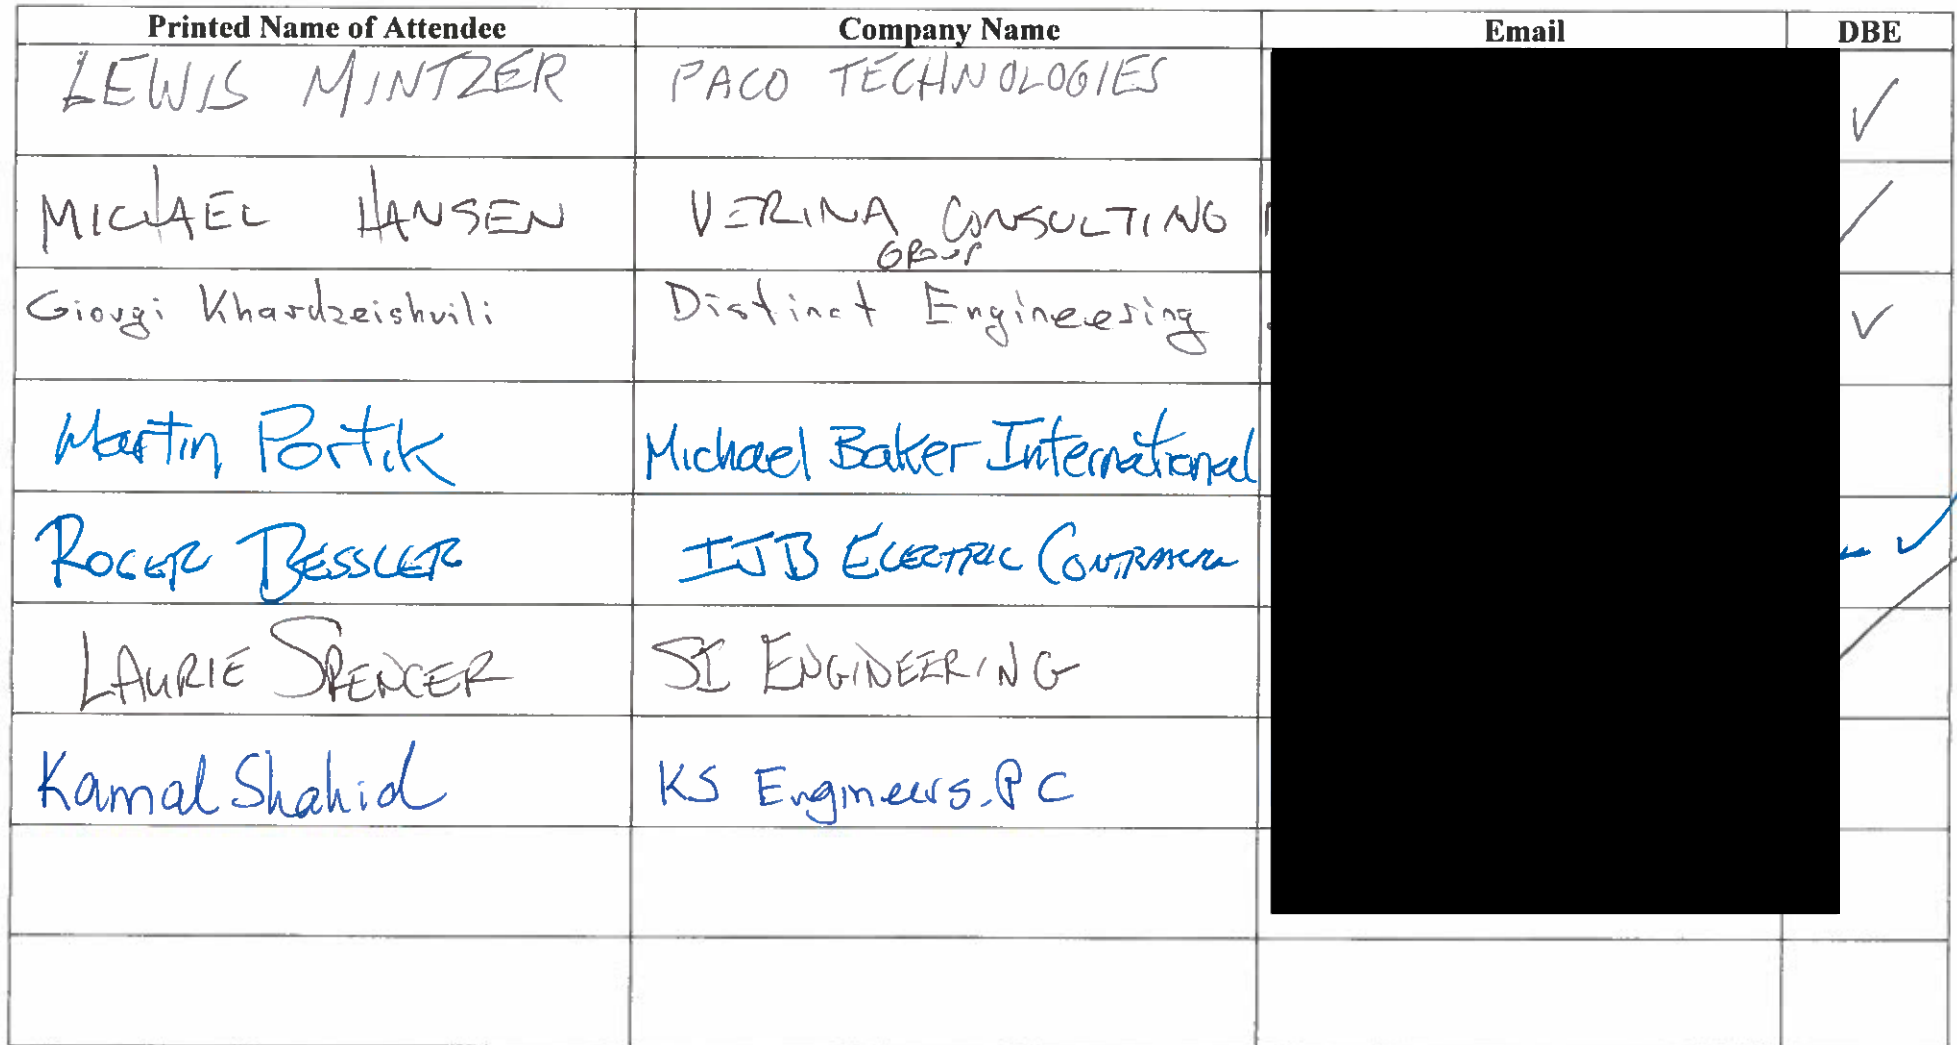 Printed Name of Attendee Company Name Email DBE
LEWIS MINTZER PACO TECHNOLOGIES ✓
MICHAEL HANSEN VERINA CONSULTING
GROUP
Giorgi Khardzeishvili Distinct Engineering ✓
Martin Portik Michael Baker International
ROGER BESSLER IJB ELECTRIC CONTRACTOR ✓
LAURIE SPENCER SI ENGINEERING
Kamal Shahid KS Engineers, PC